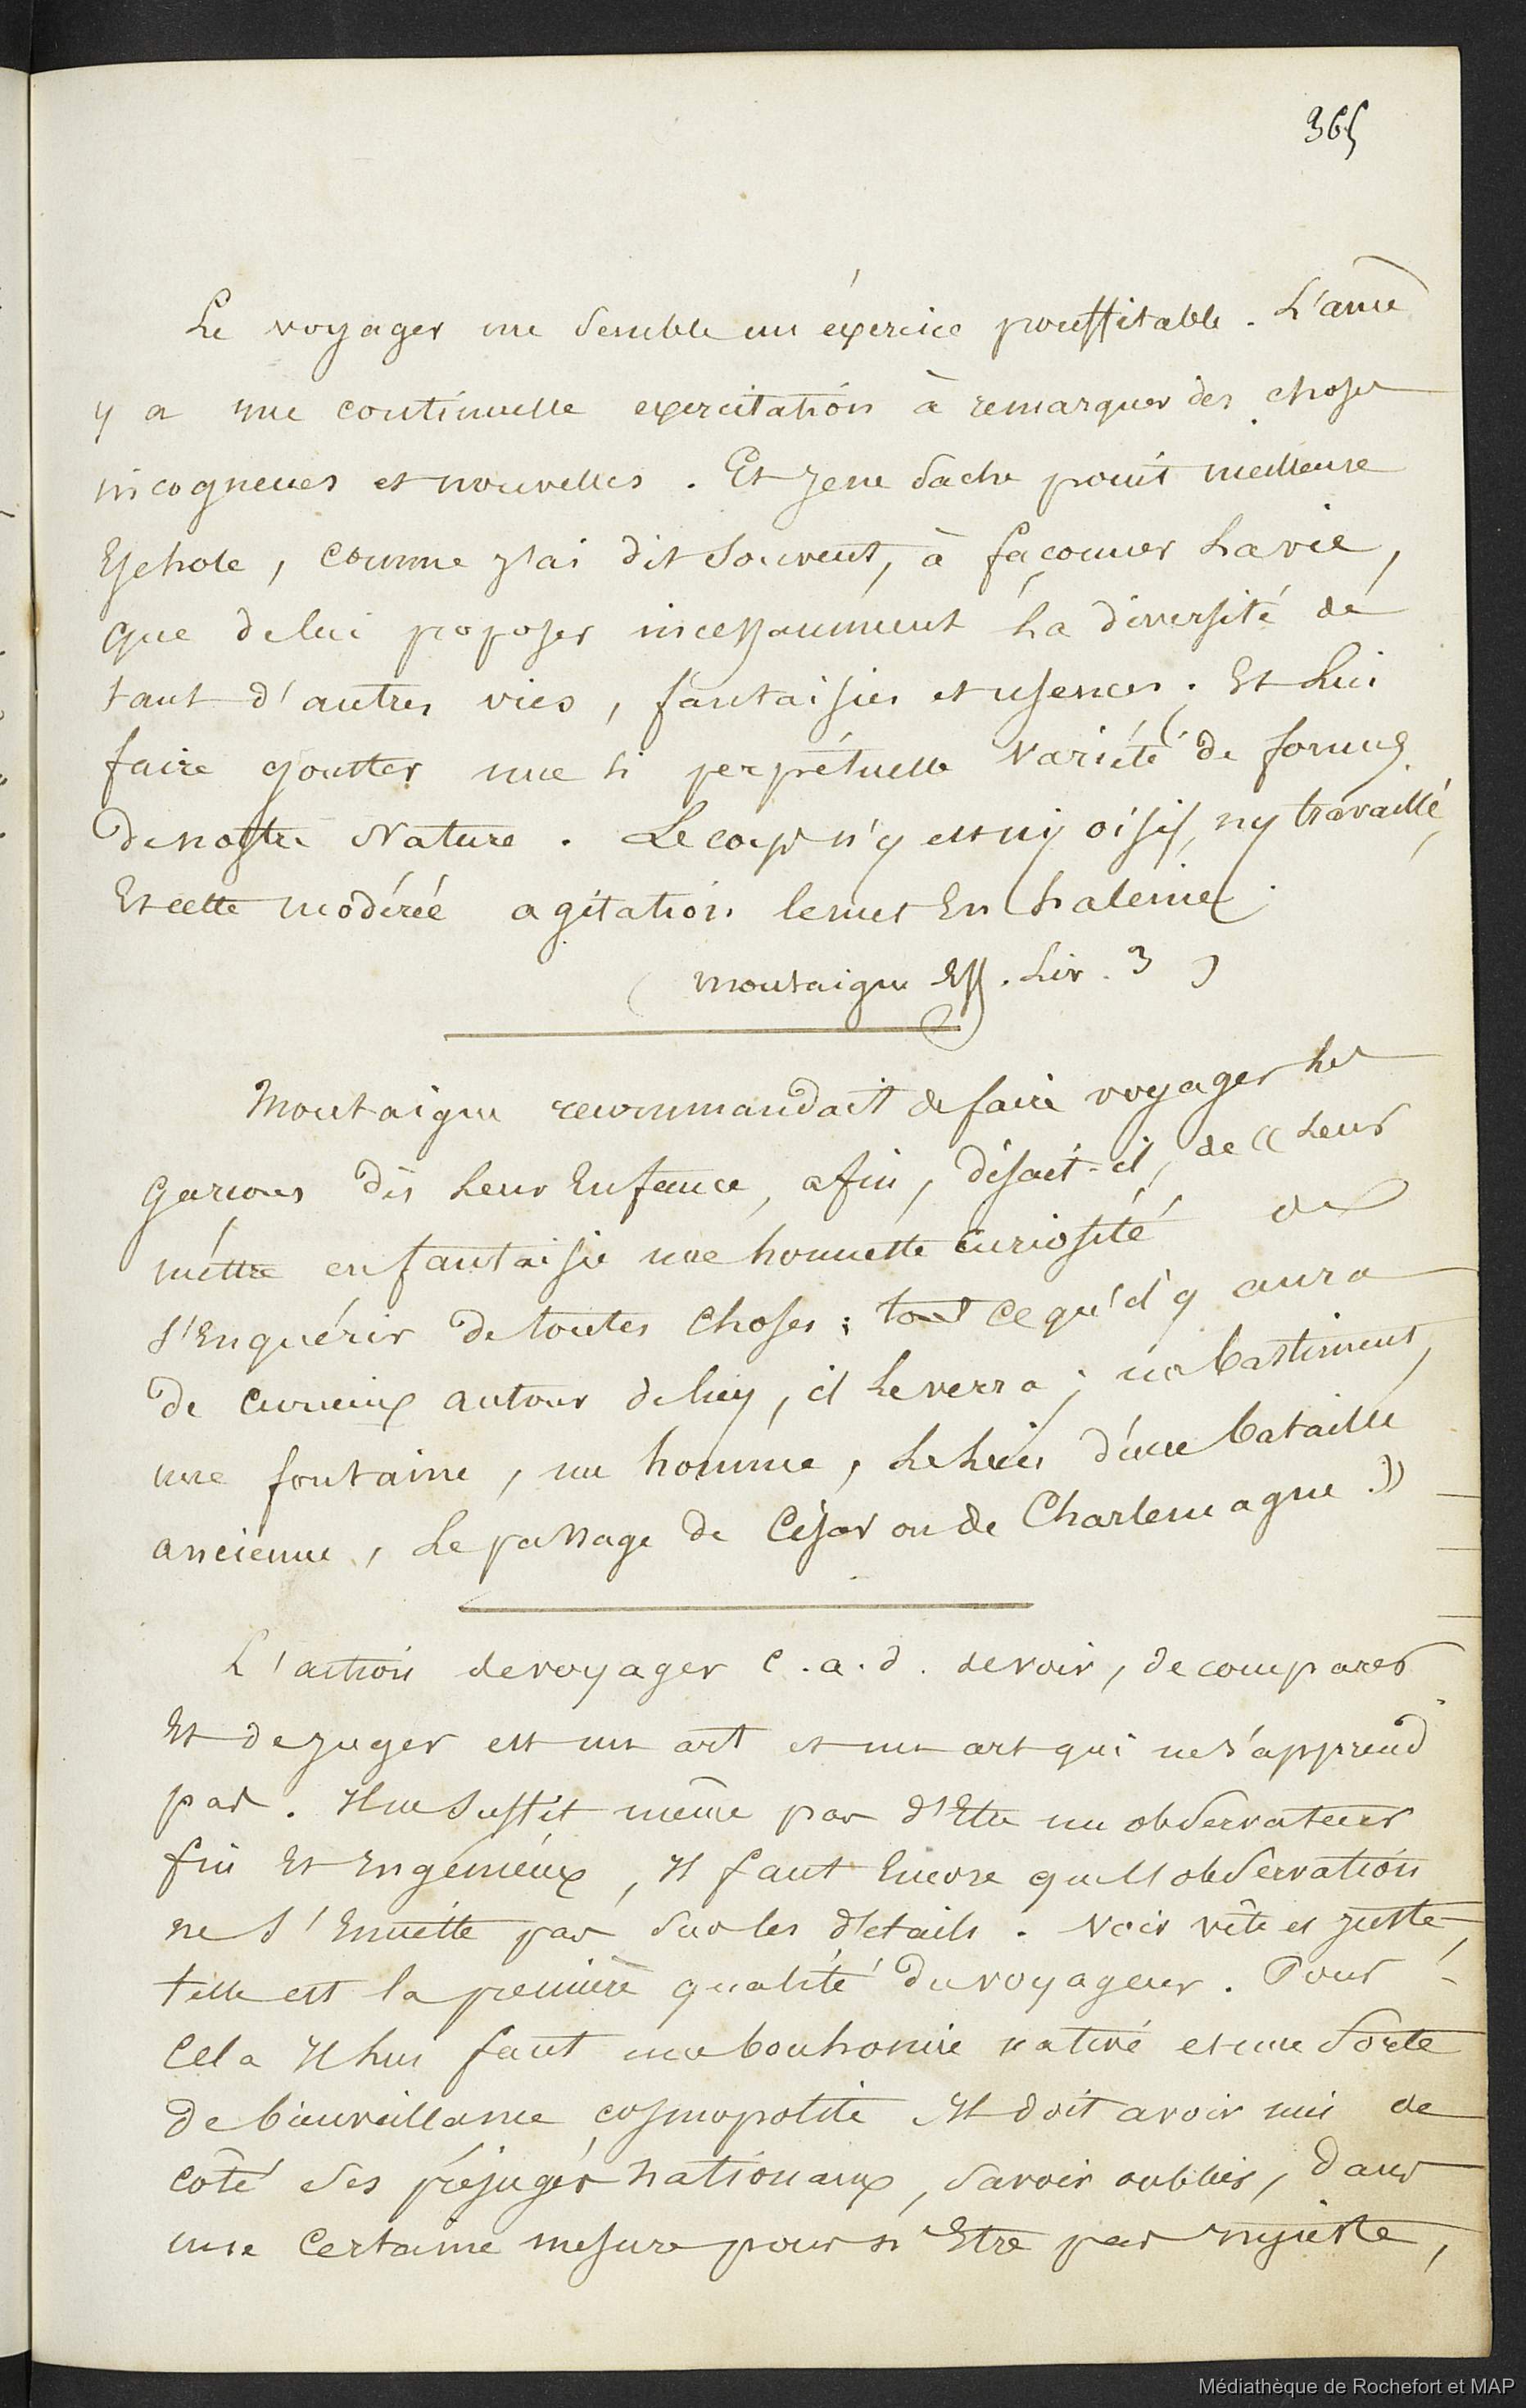 365
Le voyager me semble un éxercice prouffitable. L'ame
y a une continuelle exercitation à remarquer des choses
incogneues et nouvelles. Et je ne sache point meilleure
Eschole, comme j'ai dit souvent, à façonner la vie,
que de lui proposer incessamment la diversité de
tant d'autres vies, fantaisies et usences. Et lui
faire goutter une si perpétuelle variété de formes
de nostre Nature. Le corps n'y est ny oisif, ny travaillé,
Et cette modérée agitation le met En haleine.
(Montaigne Ess. Liv. 3)
Montaigne recommandait de faire voyager les
garçons dès leur Enfance, afin, disait-il, de « leur
mettre en fantaisie une honnette curiosité de
s'Enquérir de toutes choses; tout ce qu'il y aura
de curieux autour de luy, il le verra; un bastiment,
une fontaine, un homme, le lieu d'une bataille
ancienne, le passage de César ou de Charlemagne. »
L'action de voyager c.a.d. de voir, de comparer
Et de juger est un art et un art qui ne s'apprend
pas. Il ne suffit même pas d'Etre un observateur
fin Et Ingénieux, Il faut Encore que l'observation
ne s'Emiette pas sur les détails. Voir vite et juste,
telle est la première qualité du voyageur. Pour
Cela Il lui faut une bonhomie native et une sorte
de bienveillance cosmopolite Il doit avoir mis de
côté ses préjugés nationaux, savoir oublier, dans
une certaine mesure pour n'Etre pas injuste,
Médiathèque de Rochefort et MAP